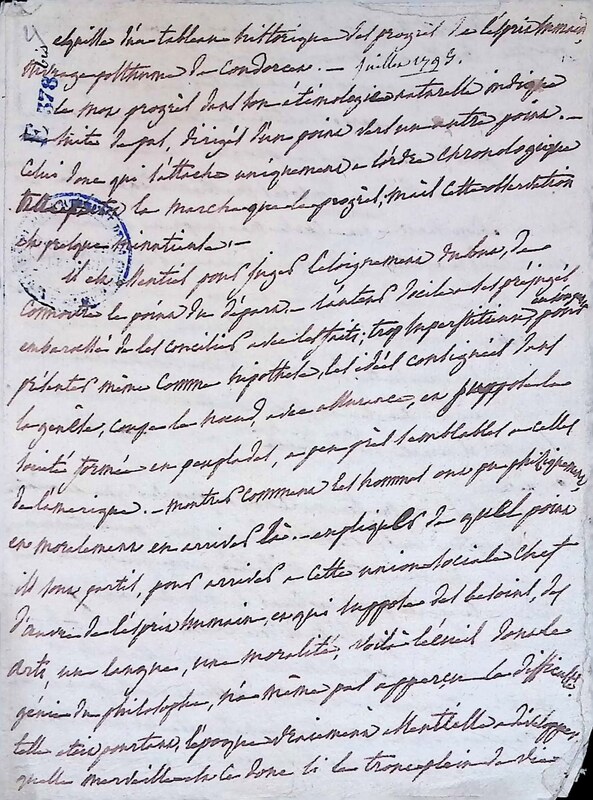 esquisse d'un tableau historique des progrès de l'esprit humain
ouvrage posthume de Condorcet. — juillet 1795.
Le mot progrès dans son etimologie naturelle indique
suite de pas, dirigés d'un point vers un autre point. —
Celui donc qui s'attache uniquement a l'ordre chronologique
la marche que le progrès, mais cette observation
est presque minutieuse. —
il est essentiel pour juger l'eloignement du but, de
connoitre le point du départ. — l'auteur docile a ses préjugés
embarassé de les concilier avec les faits, trop superstitieux pour
présenter même comme hipothese, les idées consignées dans
la genèse, coupe le nœud avec assurance, en supposant la
société formée en peuplades, a peu près semblables a celles
de l'amerique. — montrer comment les hommes ont pu phisiquement
et moralement en arriver là. — expliquer de quel point
ils sont partis, pour arriver a cette union sociale chef
d'œuvre de l'esprit humain, et qui suppose des besoins, des
arts, un langue, une moralité, voilà l'écueil dont le
génie du philosophe, n'a même pas apperçu la difficulté.
telle etoit pourtant, l'epoque vraiement essentielle a développer,
quelle merveille est ce donc si le tronc plein de vie
E 378 bis